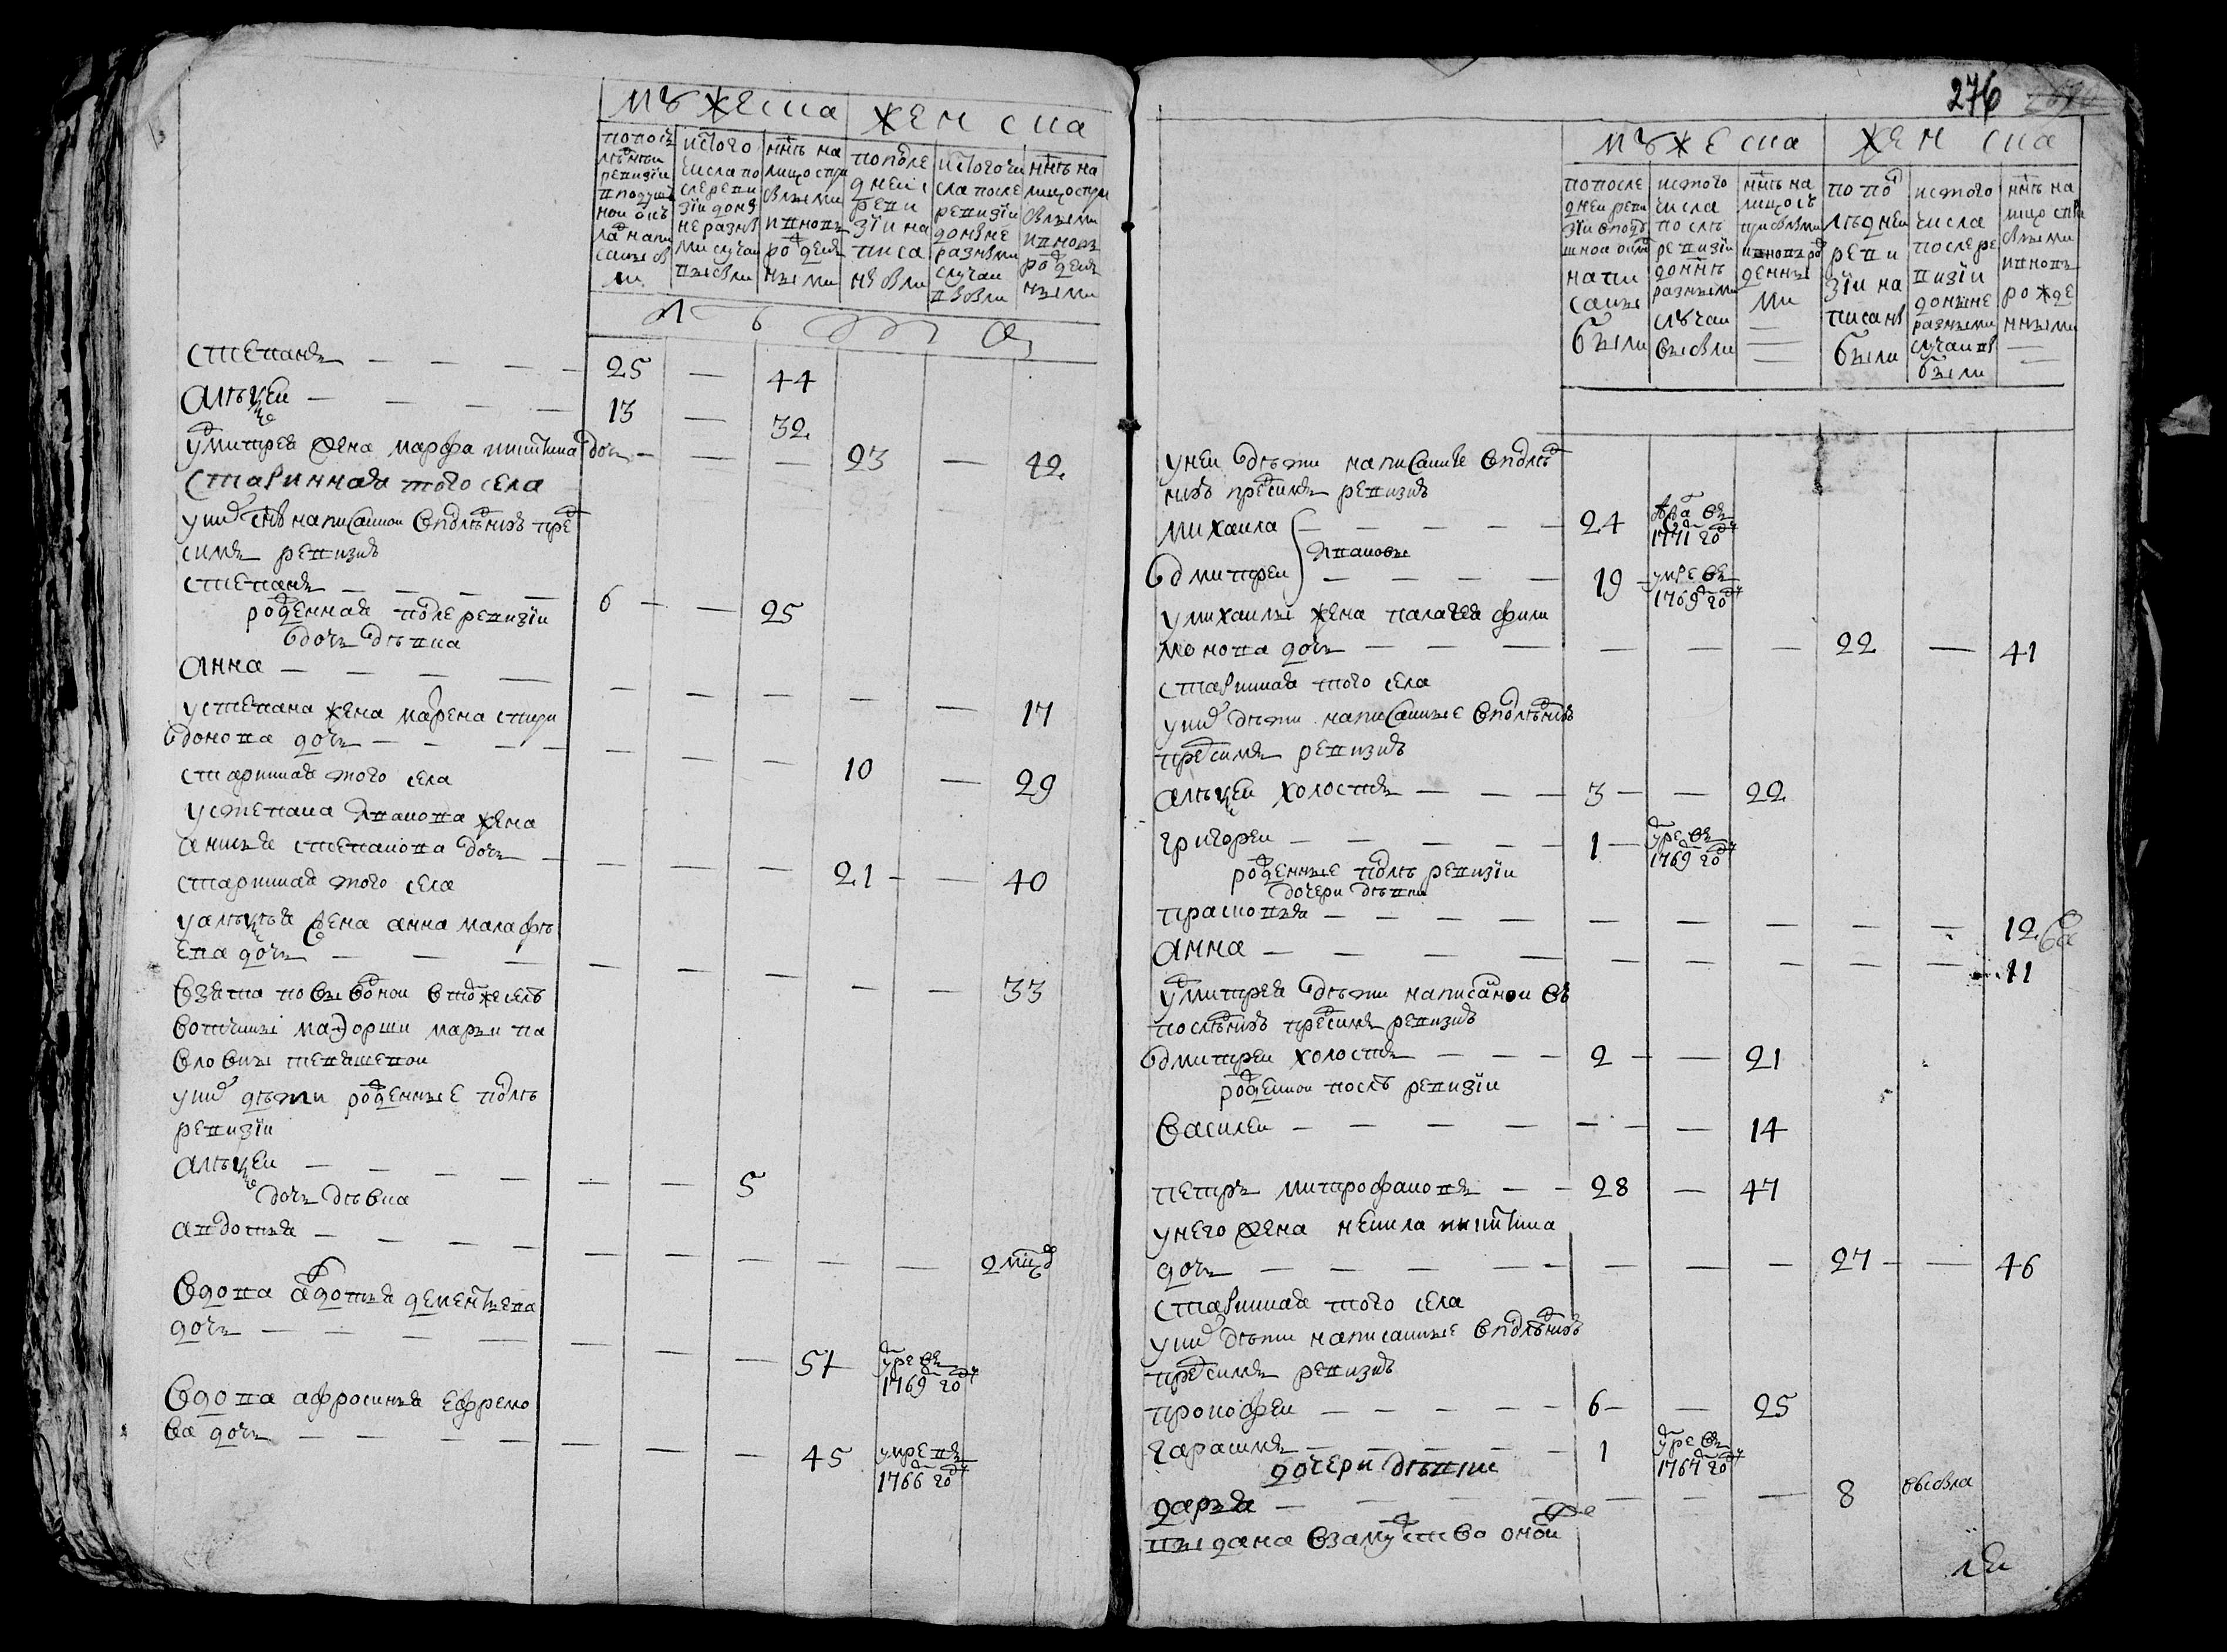 мужеска женска
по послѣднеи ревизіи в подушной окладъ написаные были
ис того числа после ревизіи до нне разными случаи выбыли
ннѣ на лицо с прибылыми и вновь рожденными
по последнеи ревизіи написаны были
ис того числа после ревизіи до нне разными случаи выбыли
ннѣ на лицо с прибылыми и вновь рожденными
лѣта
степанъ — 25 — 44
алѣксеи — 13 — 32
у дмитрея жена марфа никитина дочь — 23 — 42
старинная того села
у них снъ написаннои в последнюю пред
симъ ревизию
степанъ — 6 — 25
рожденная после ревизіи
дочь дѣвка
анна — 17
у степана жена марѳена спири
донова дочь — 10 — 29
старинная того села
у степана иванова жена
анисья степанова дочь — 21 — 40
старинная того села
у алѣксѣя жена анна малафѣ
ева дочь — 33
взята по выводнои в тож селѣ
вотчины маіорши марьи па
вловны
у них дѣти рожденные послѣ
ревизіи
алѣксеи — 5
дочь дѣвка
авдотья — 2 мсцов
вдова авдотья дементьева
дочь — 51 умре въ 1769 году
вдова афросинья ефремо
ва дочь — 45 умре въ 1766 году
276
мужеска женска
по последнеи ревизіи в подушнои окладъ написаны были
ис того числа послѣ ревизіи до ннѣ разными случаи выбыли
ннѣ на лицо съ прибылыми и вновь рожденными
по послѣднеи ревизіи написаны были
ис того числа после ревизіи до ныне разными случаи выбыли
ннѣ на лицо с прибылыми и вновь рожденными
у неи дѣти написанные в послѣд
нюю пред симъ ревизию
михаила — 24 въ 1771 году
ивановы
дмитреи — 19 умре въ 1769 году
у михаилы жена палагея фили
монова дочь — 22 — 41
старинная того села
у них дѣти написанные в последнюю
пред симъ ревизию
алѣксеи холостъ — 3 — 22
григореи — 1 умре въ 1769 году
рожденные послѣ ревизіи
дочери дѣвки
прасковья — 12
анна — 11
у дмитрея дѣти написанои въ
послѣднюю пред симъ ревизию
дмитреи холостъ — 2 — 21
рожденнои послѣ ревизіи
василеи — 14
петръ митрофановъ — 28 — 47
у него жена ненила никитина
дочь — 27 — 46
старинная того села
у них дѣти написанные в последнюю
пред симъ ревизию
прокофеи — 6 — 25
гарасимъ — 1 умре въ 1767 году
дочери дѣвки
дарья — 8 выбыла
выдана взамужство онои же